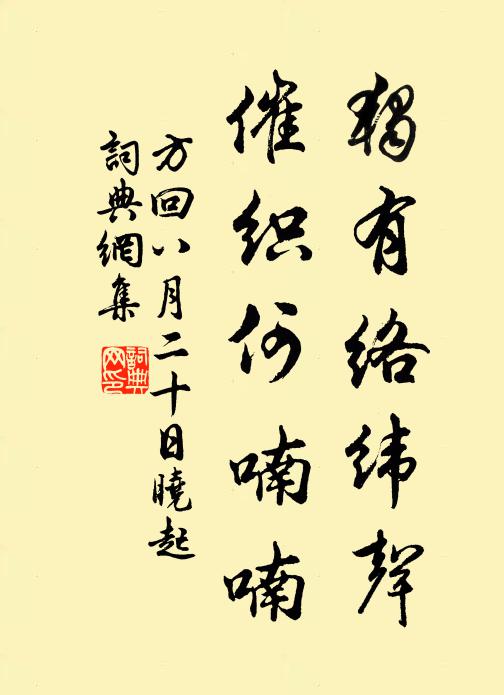 獨有络纬聲
催织何喃喃
方回八月二十日曉起
詞典網集
詞典网印